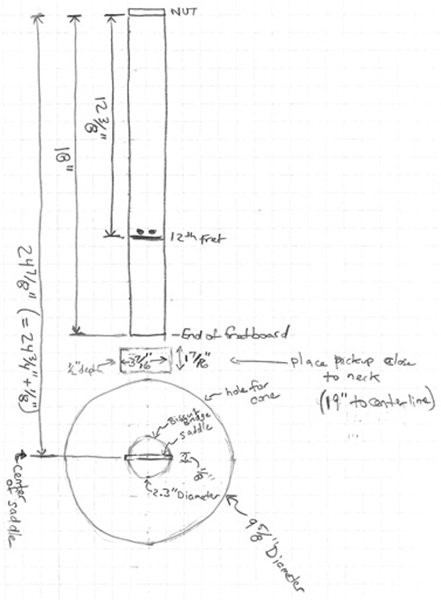 NUT
12 3/8"
18"
12th fret
24 7/8" (= 24 3/4" + 1/8")
End of fretboard
1/2" depth
3 7/16"
1 7/16"
place pickup close
to neck
(19" to centerline)
hole for
cone
Biscuit
Bridge
saddle
1/8"
2.3" Diameter
center
of saddle
9 5/8" Diameter